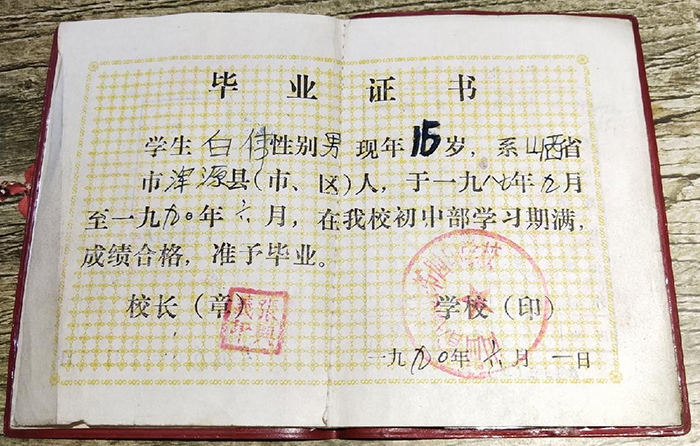 毕业证书
学生 白伟 性别 男 现年 15 岁，系 山西 省
市 浑源 县（市、区）人，于一九八七年九月
至一九九〇年六月，在我校初中部学习期满，
成绩合格，准予毕业。
校长（章） 学校（印）
一九九〇年六月一日